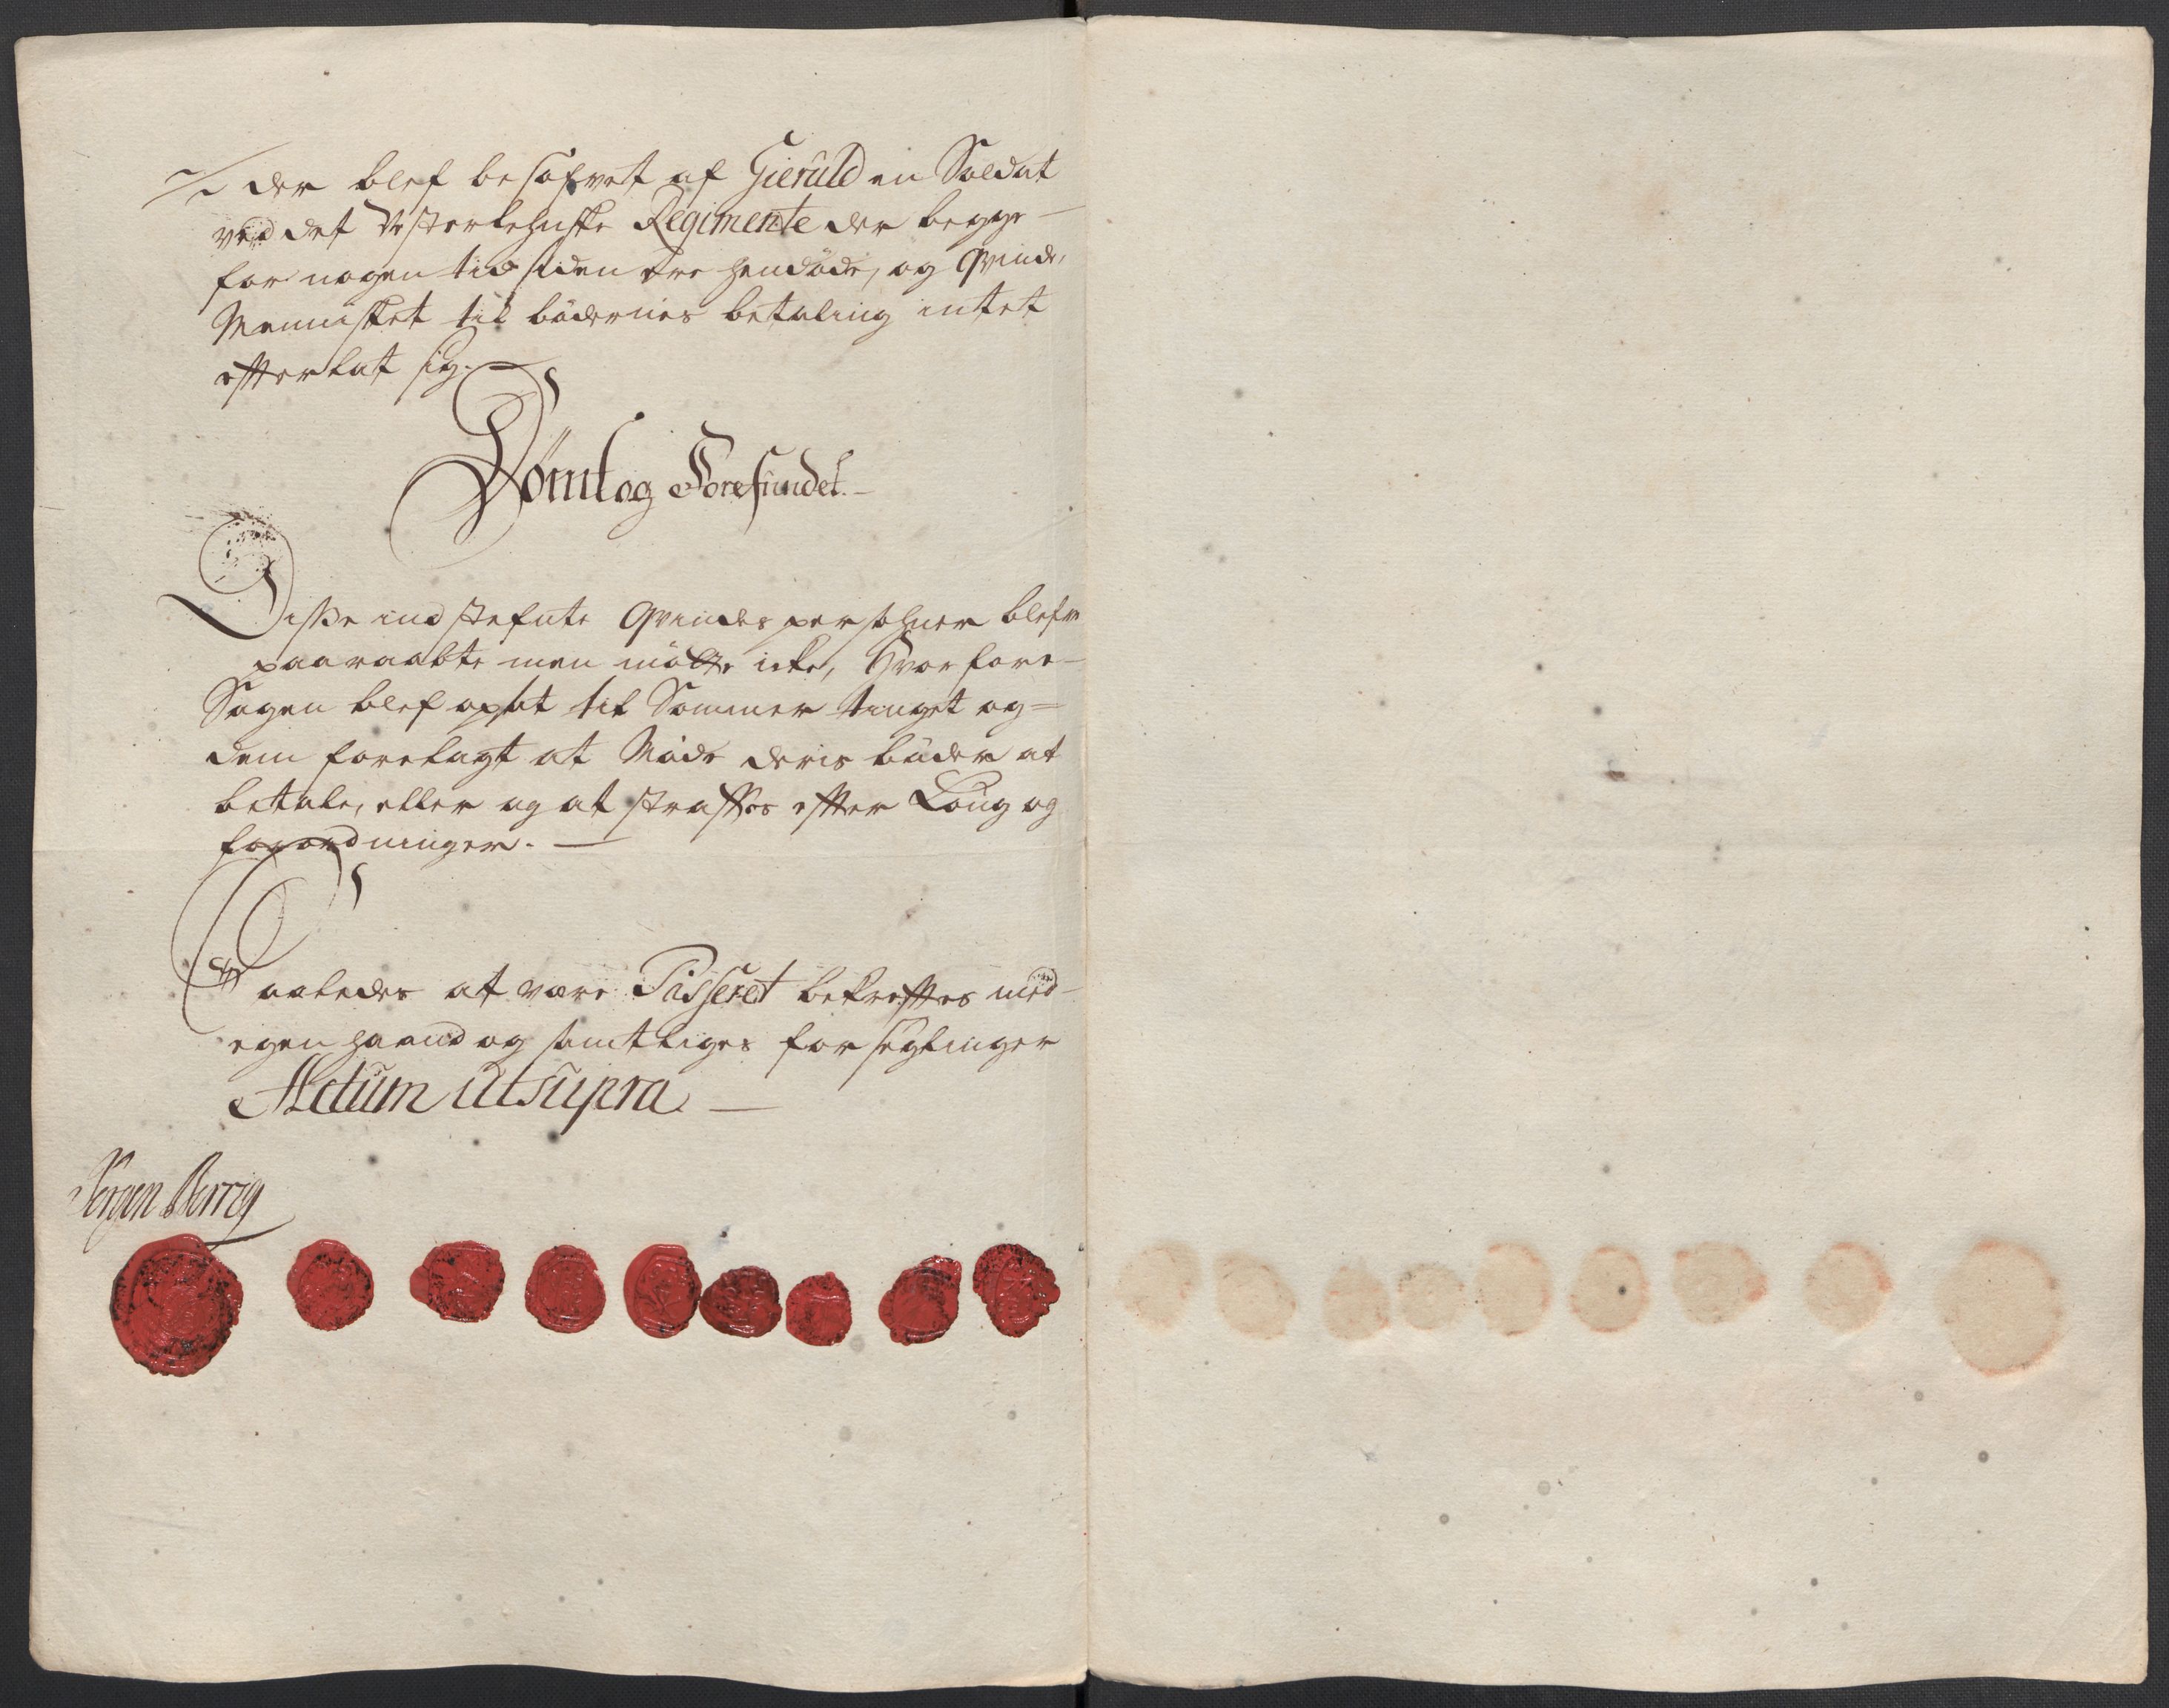 der blef besofvet af Gieruld en Soldat
ved det Vesterlehnske Regimente der begge
for nogen tid siden ere hendöde, og Qvinde,
Mennisket til bödernis betaling intet
efterlat sig.
Dömt og Forefundet.
Disse ind stefnte Qvindes persohner blefve
paaraabte men mötte icke, hvorfore
Sagen blef opsat til Sommer tinget og
dem forelagt at Möde deris böder at
betale, eller og at straffes efter Loug og
forordninger.
Saaledes at være Passeret bekreftes med
egen haand og samtliges forseglinger
Actum ut supra
Jørgen Berrig